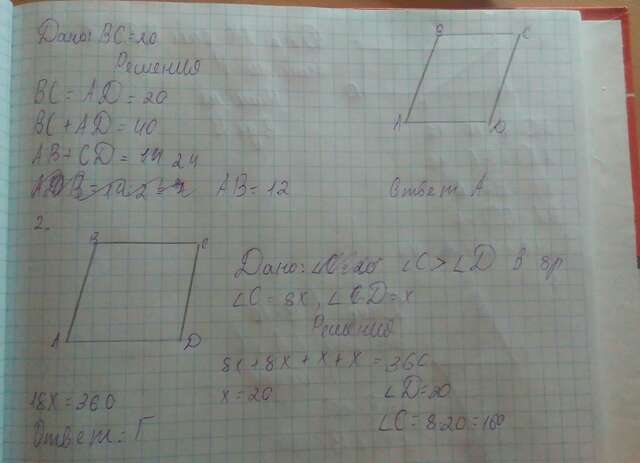 Дано: BC=20
Решения
BC = AD = 20
BC + AD = 40
AB + CD = 24
AB = 12
Ответ А
B
C
A
D
2.
B
C
A
D
∠C > ∠D в 8р
∠C = 8x, ∠D = x
Решения
8x + 8x + x + x = 360
18x = 360
x = 20
∠D = 20
∠C = 8·20 = 160
Ответ: Г